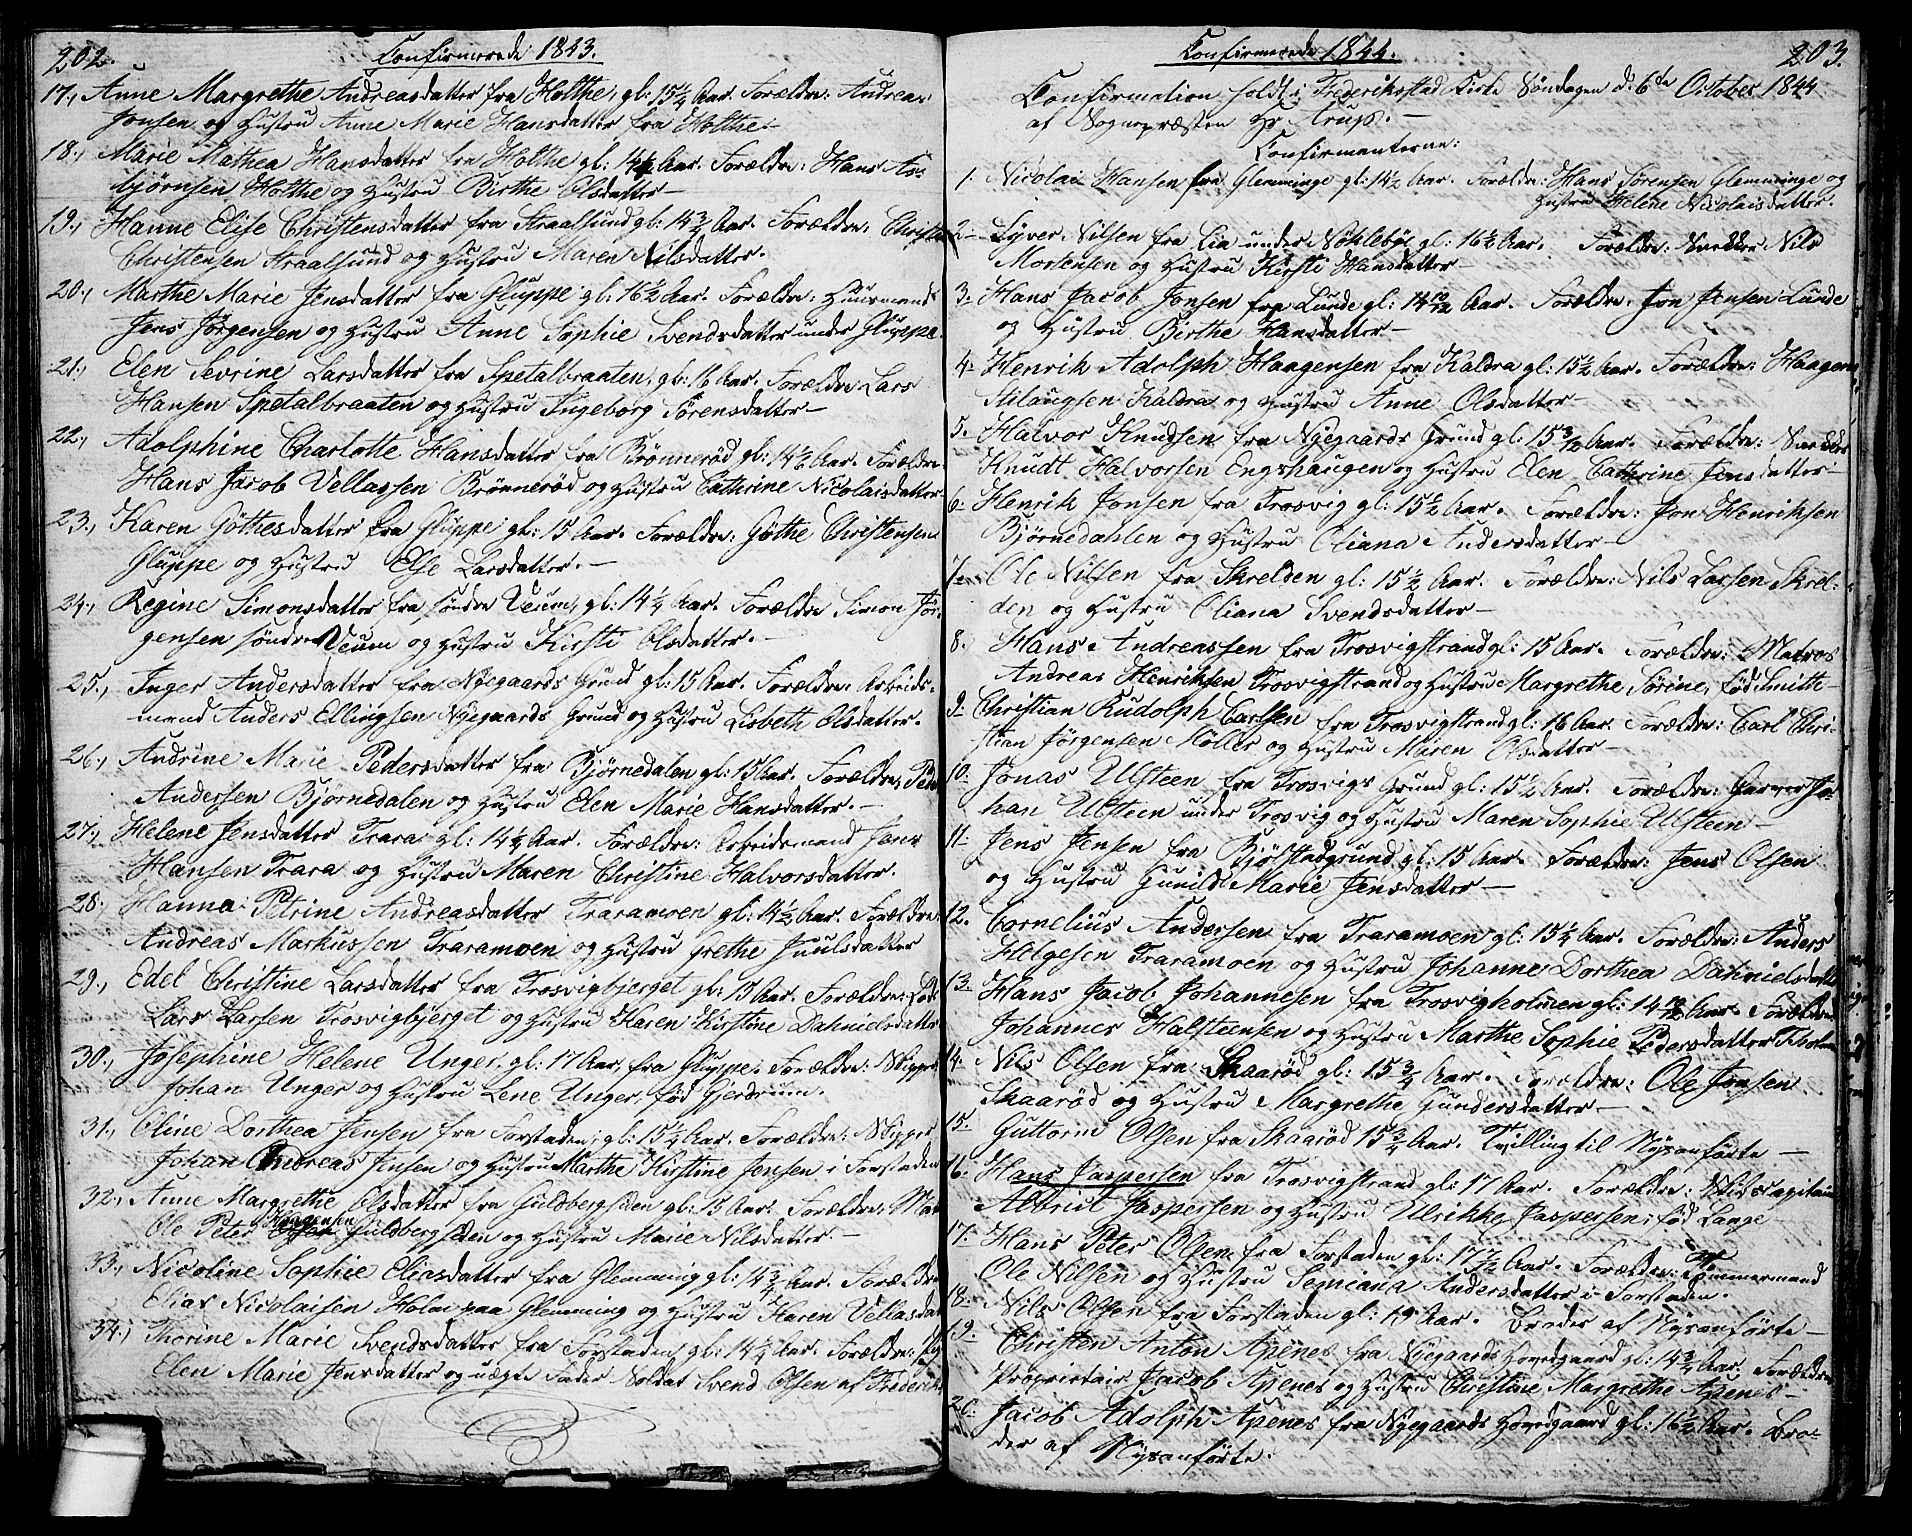 202.
Confirmerede 1843.
17., Anne Margrethe Andreasdatter fra Holthe, gl: 15 1/4 Aar. Forældre: Andreas
Jonsen og Hustru Anne Marie Hansdatter fra Holthe.
18., Marie Mathea Hansdatter fra Holthe gl: 14 Aar. Forældre: Hans As-
bjørnsen Holthe og Hustru Birthe Olsdatter
19., Hanne Elise Christensdatter fra Straalsund gl: 14 3/4 Aar. Forældre: Christen
Christensen Straalsund og Hustru Maren Nilsdatter.
20., Marthe Marie Jensdatter fra Gluppe gl: 16 1/2 Aar. Forældre: Huusmand
Jens Jörgensen og Hustru Anne Sophie Svendsdatter under Gluppe.
21., Elen Sevrine Larsdatter fra Spetalbraaten, gl: 16 Aar. Forældre: Lars
Hansen Spetalbraaten og Hustru Ingeborg Sörensdatter
22., Adolphine Charlotte Hansdatter fra Brönneröd gl: 14 Aar. Forældre
Hans Jacob Vellassen Brönneröd og Hustru Cathrine Nicolaisdatter
23., Karen Göthesdatter fra Gluppe gl: 15 Aar. Forældre: Göthe Christensen
Gluppe og Hustru Else Larsdatter.
24., Regine Simonsdatter fra söndre Veum, gl: 14 1/4 Aar. Forældre Simon Jör-
gensen söndre Veum og Hustru Kirsti Olsdatter.
25., Inger Andersdatter fra Nyegaards Grund gl: 15 Aar. Forældre: Arbeids-
mand Anders Ellingsen Nyegaards Grund og Hustru Lisbeth Olsdatter.
26., Andrine Marie Pedersdatter fra Bjørnedalen gl: 15 Aar. Forældre, Peder
Andersen Bjørnedalen og Hustru Elen Marie Hansdatter.
27., Helene Jensdatter Trara gl: 14 1/2 Aar. Forældre: Arbeidsmand Jens
Hansen Trara og Hustru Maren Christine Halvorsdatter.
28., Hanna Petrine Andreasdatter Traramoen gl: 14 1/2 Aar. Forældre:
Andreas Markussen Traramoen og Hustru Grethe Juulsdatter
29., Edel Christine Larsdatter fra Trosvigbjerget gl: 15 Aar. Forældre:
Lars Larsen Trosvigbjerget og Hustru Karen Kirstine Dahnielsdatter
30., Josephine Helene Unger, gl: 17 Aar, fra Gluppe. Forældre: Skipper
Johan Unger og Hustru Lene Unger, fød Gjerdrum.
31., Oline Dorthea Jensen fra Forstaden, gl: 15 1/4 Aar. Forældre: Skipper
Johan Andreas Jensen og Hustru Marthe Kirstine Jensen i Forstaden
32., Anne Margrethe Olsdatter fra Guldbergsiden gl: 15 Aar. Forældre:
Ole Peter Haagensen Guldbergsiden og Hustru Marie Nilsdatter.
33., Nicoline Sophie Eliasdatter fra Glemming gl: 14 3/4 Aar. Forældre
Elias Nicolaisen Holm paa Glemming og Hustru Karen Vellasdat
34., Thorine Marie Svendsdatter fra Forstaden, gl: 14 1/4 Aar. Forældre:
Elen Marie Jensdatter og uægte Fader Soldat Svend Olsen af Frederiks
Confirmerede 1844.
203.
Confirmation holdt i Frederikstad Kirke Søndagen d: 6te October 1844
af Sognepræsten Hr Krup.
Confirmanterne:
1. Nicolai Hansen fra Glemminge gl: 14 1/2 Aar. Forældre: Hans Sörensen Glemminge og
Hustru Helene Nicolaisdatter.
2. Syver Nilsen fra Lia under Nøklebye gl: 16 1/2 Aar. Forældre: Snekker Nils
Mortensen og Hustru Kirsti Hansdatter
3. Hans Jacob Jonsen fra Lunde gl: 14 10/12 Aar. Forældre: Jon Jensen Lunde
og Hustru Birthe Hansdatter
4. Henrik Adolph Haagensen fra Kaldra gl: 15 1/2 Aar. Forældre: Haagen
Stilaugsen Kaldra og Hustru Anne Olsdatter
5. Halvor Knudsen fra Nyegaards Grund gl: 15 3/12 Aar. Forældre: Snekker
Knudt Halvorsen Engshaugen og Hustru Elen Cathrine Jensdatter
6. Henrik Jonsen fra Trosvig gl: 15 1/2 Aar. Forældre: Jon Henriksen
Bjørnedahlen og Hustru Oliana Andersdatter
7. Ole Nilsen fra Skrelden gl: 15 1/2 Aar. Forældre: Nils Larsen Skrel-
den og Hustru Oliana Svendsdatter
8. Hans Andreassen fra Trosvigstrand gl: 15 Aar. Forældre: Matros
Andreas Henriksen Trosvigstrand og Hustru Margrethe Sörine, fød Smitte-
9. Christian Rudolph Carlsen fra Trosvigstrand gl: 16 Aar Forældre: Carl Chri-
stian Jörgensen Möller og Hustru Maren Olsdatter
10. Jonas Ulsteen fra Trosvigs Grund gl: 15 1/2 Aar. Forældre: Garver Jo-
han Ulsteen under Trosvig og Hustru Maren Sophie Ulsteen
11. Jens Jensen fra Bjølstadgrund gl: 15 Aar. Forældre: Jens Olsen
og Hustru Gunild Marie Jensdatter
12. Cornelius Andersen fra Traramoen gl: 15 1/4 Aar. Forældre: Anders
Helgesen Traramoen og Hustru Johanne Dorthea Dahnielsdatter
13. Hans Jacob Johannesen fra Trosvigholmen gl: 14 Aar. Forældre
Johannes Halsteensen og Hustru Marthe Sophie Pedersdatter Tholmen
14. Nils Olsen fra Skaaröd gl: 15 3/4 Aar. Forældre: Ole Jonsen
Skaaröd og Hustru Margrethe Gundersdatter
15. Guttorm Olsen fra Skaaröd 15 3/4 Aar. Tvilling til Nysanførte
16. Hans Jaspersen fra Trosvigstrand gl: 17 Aar. Forældre: Skibscapitain
Albrut Jaspersen og Hustru Ulrikke Jaspersen, fød Lange
17. Hans Peter Olsen fra Forstaden gl: 17 1/2 Aar. Forældre:
Ole Nilsen og Hustru Semiana Andersdatter i Forstaden. Tömmermand
18. Nils Olsen fra Forstaden gl: 19 Aar. Broder af Nysanførte
19. Christen Anton Apenes fra Nyegaards Hovedgaard gl: 14 3/4 Aar. Forældre
Proprietair Jacob Apenes og Hustru Christine Margrethe Apenes
20. Jacob Adolph Apenes fra Nyegaards Hovedgaard gl: 16 1/2 Aar. Bro-
der af Nysanførte.